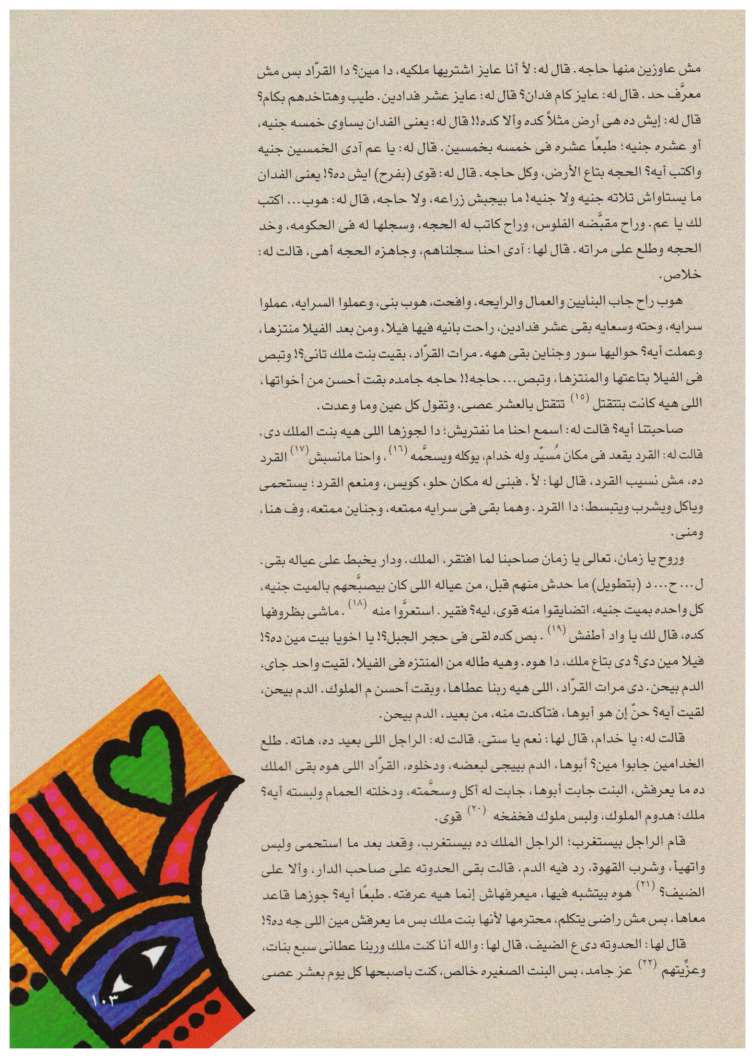 مش عاوزين منها حاجه. قال له: لأ أنا عايز اشتريها ملكيه، دا مين؟ دا القرّاد بس مش
معرَّف حد. قال له: عايز كام فدان؟ قال له: عايز عشر فدادين. طيب وهتاخدهم بكام؟
قال له: إيش ده هى أرض مثلاً كده وألا كده!! قال له: يعنى الفدان يساوى خمسه جنيه،
أو عشره جنيه؛ طبعًا عشره فى خمسه بخمسين. قال له: يا عم آدى الخمسين جنيه
واكتب أيه؟ الحجه بتاع الأرض، وكل حاجه. قال له: قوى (بفرح) ايش ده؟! يعنى الفدان
ما يستاواش تلاته جنيه ولا جنيه! ما بيجبش زراعه، ولا حاجه، قال له: هوب... اكتب
لك يا عم. وراح مقبَّضه الفلوس، وراح كاتب له الحجه، وسجلها له فى الحكومه، وخد
الحجه وطلع على مراته. قال لها: آدى احنا سجلناهم، وجاهزه الحجه أهى، قالت له:
خلاص.
هوب راح جاب البنايين والعمال والرايحه، وافحت، هوب بنى، وعملوا السرايه، عملوا
سرايه، وحته وسعايه بقى عشر فدادين، راحت بانيه فيها فيلا، ومن بعد الفيلا منتزها،
وعملت أيه؟ حواليها سور وجناين بقى ههه. مرات القرّاد، بقيت بنت ملك تانى؟! وتبص
فى الفيلا بتاعتها والمنتزها، وتبص... حاجه!! حاجه جامده بقت أحسن من أخواتها،
اللى هيه كانت بتتقتل (١٥) تتقتل بالعشر عصى، وتقول كل عين وما وعدت.
صاحبتنا أيه؟ قالت له: اسمع احنا ما نفتريش؛ دا لجوزها اللى هيه بنت الملك دى.
قالت له: القرد يقعد فى مكان مُسيّد وله خدام، يوكله ويسحَّمه (١٦)، واحنا مانسبش (١٧) القرد
ده، مش نسيب القرد، قال لها: لأ. فبنى له مكان حلو، كويس، ومنعم القرد؛ يستحمى
وياكل ويشرب ويتبسط؛ دا القرد. وهما بقى فى سرايه ممتعه، وجناين ممتعه، وف هنا،
ومنى.
وروح يا زمان، تعالى يا زمان صاحبنا لما افتقر، الملك. ودار يخبط على عياله بقى.
ل... ح... د (بتطويل) ما حدش منهم قبل، من عياله اللى كان بيصبَّحهم بالميت جنيه،
كل واحده بميت جنيه، اتضايقوا منه قوى، ليه؟ فقير. استعرَّوا منه (١٨). ماشى بظروفها
كده، قال لك يا واد أطفش (١٩). بص كده لقى فى حجر الجبل؟! يا اخويا بيت مين ده؟!
فيلا مين دى؟ دى بتاع ملك، دا هوه. وهيه طاله من المنتزه فى الفيلا، لقيت واحد جاى،
الدم بيحن. دى مرات القرّاد، اللى هيه ربنا عطاها، وبقت أحسن م الملوك، الدم بيحن،
لقيت أيه؟ حنّ إن هو أبوها، فتأكدت منه، من بعيد، الدم بيحن.
قالت له: يا خدام، قال لها: نعم يا ستى، قالت له: الراجل اللى بعيد ده، هاته. طلع
الخدامين جابوا مين؟ أبوها، الدم بييجى لبعضه، ودخلوه، القرّاد اللى هوه بقى الملك
ده ما يعرفش، البنت جابت أبوها، جابت له أكل وسحَّمته، ودخلته الحمام ولبسته أيه؟
ملك؛ هدوم الملوك، ولبس ملوك فخفخه (٢٠) قوى.
قام الراجل بيستغرب؛ الراجل الملك ده بيستغرب، وقعد بعد ما استحمى ولبس
واتهيأ، وشرب القهوة، رد فيه الدم. قالت بقى الحدوته على صاحب الدار، وألا على
الضيف؟ (٢١) هوه بيتشبه فيها، ميعرفهاش إنما هيه عرفته. طبعًا أيه؟ جوزها قاعد
معاها، بس مش راضى يتكلم، محترمها لأنها بنت ملك بس ما يعرفش مين اللى جه ده؟!
قال لها: الحدوته دى ع الضيف، قال لها: والله أنا كنت ملك وربنا عطانى سبع بنات،
وعزِّيتهم (٢٢) عز جامد، بس البنت الصغيره خالص، كنت باصبحها كل يوم بعشر عصى
١٠٣